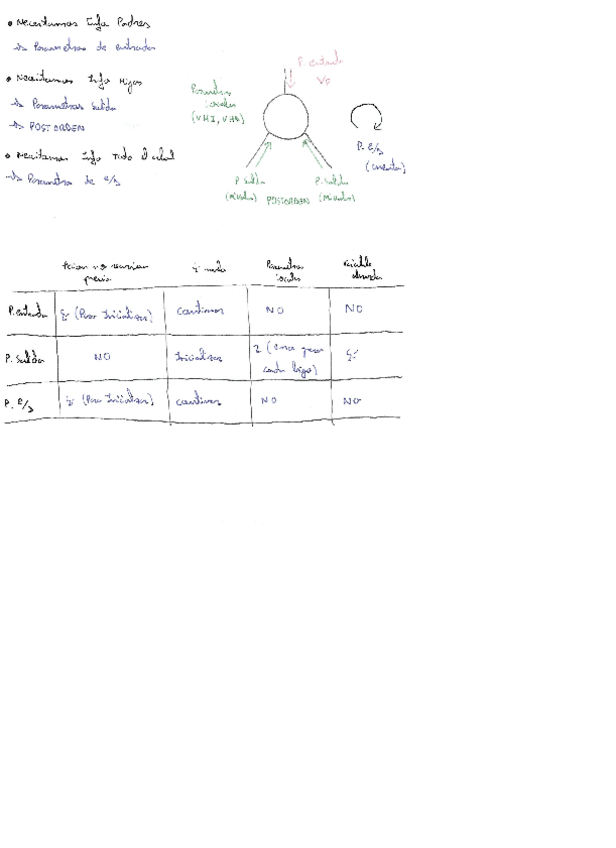 • Necesitamos Info Padres
→ Parametros de entrada
• Necesitamos Info Hijos
→ Parametros Salida
→ POSTORDEN
• Necesitamos Info Todo el arbol
→ Parametros de e/s
P. entrada
Parametros
Locales
(VHI, VHD)
P. e/s
P. Salida
P. Salida
POSTORDEN
Accion no recursiva
previa
Si nulo
Parametros
locales
Variable
P. entrada
Si (Para Inicializar)
continuar
NO
NO
P. Salida
NO
Inicializar
2 (Uno para
cada hijo)
Si
P. e/s
Si (Para Inicializar)
continuar
NO
NO